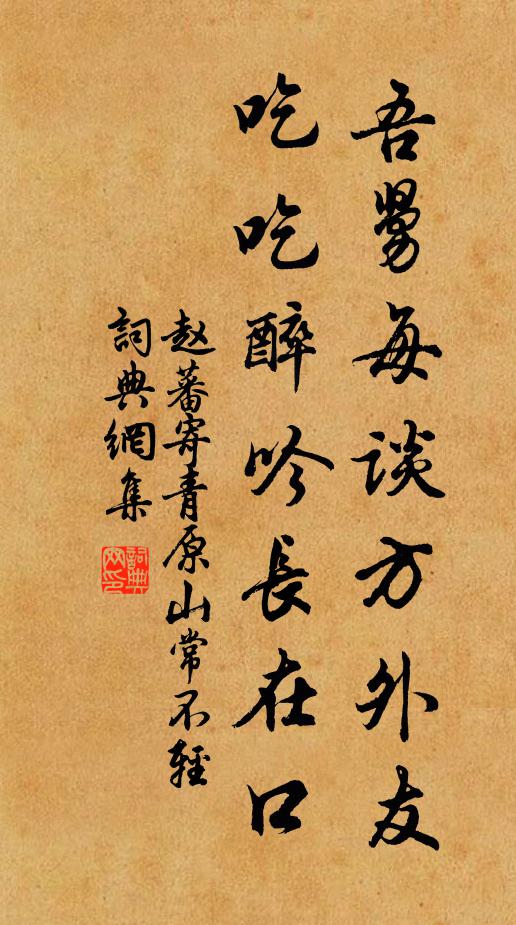 吾舅每談方外友
吃吃醉吟長在口
赵蕃寄青原山常不輕
詞典網集
詞典网印